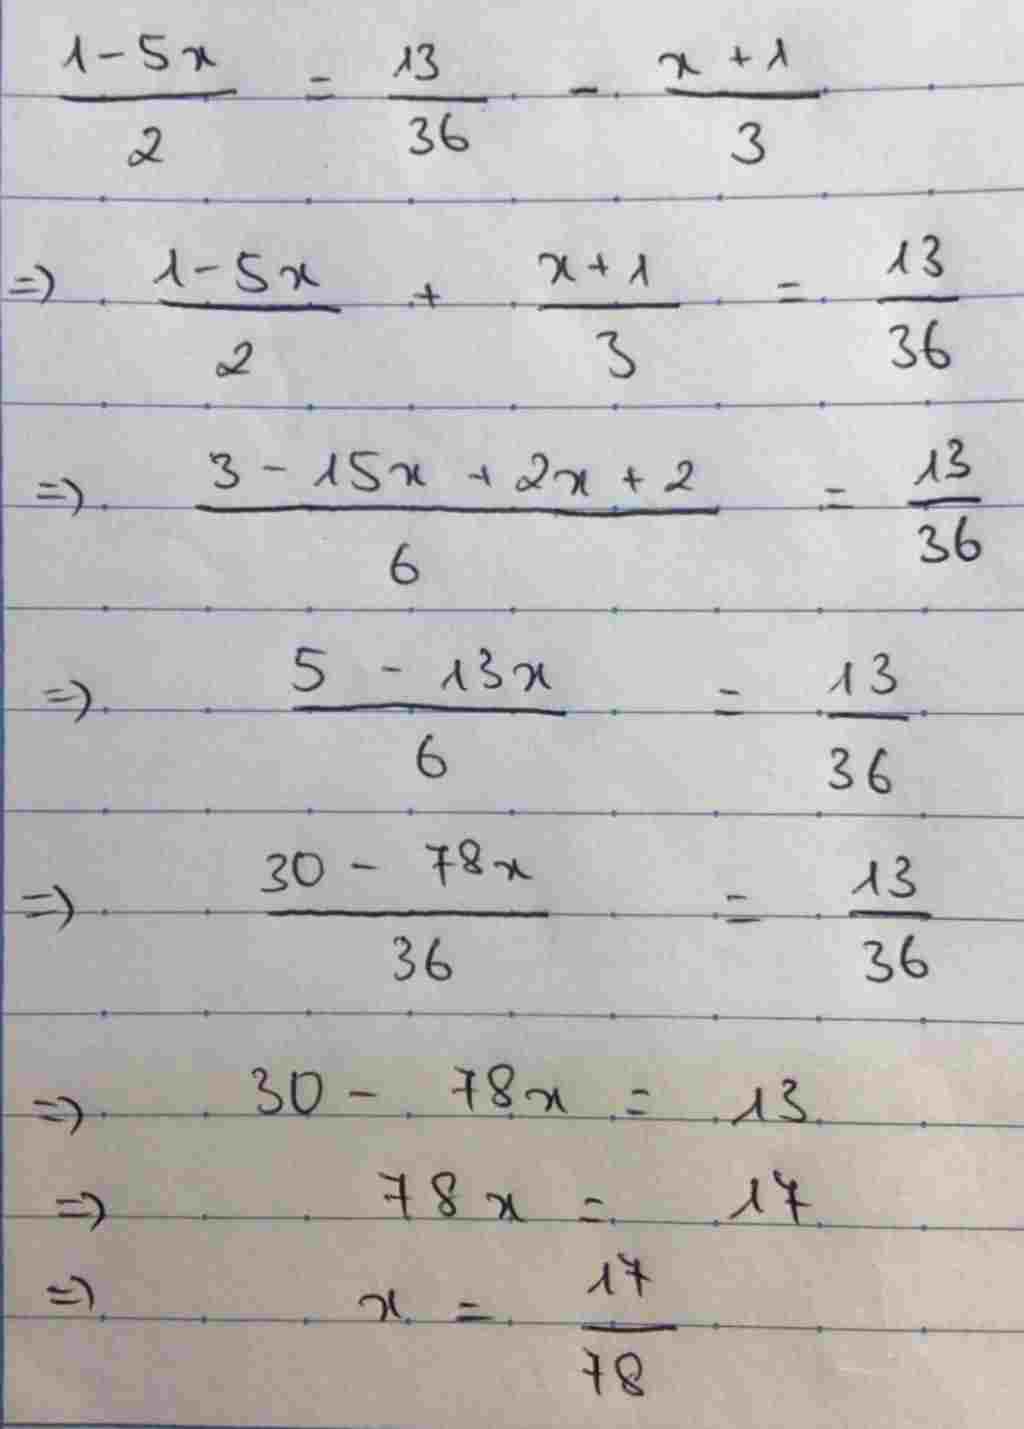 1-5x/2 = 13/36 - x+1/3
=> 1-5x/2 + x+1/3 = 13/36
=> 3-15x+2x+2/6 = 13/36
=> 5-13x/6 = 13/36
=> 30-78x/36 = 13/36
=> 30-78x = 13
=> 78x = 17
=> x = 17/78